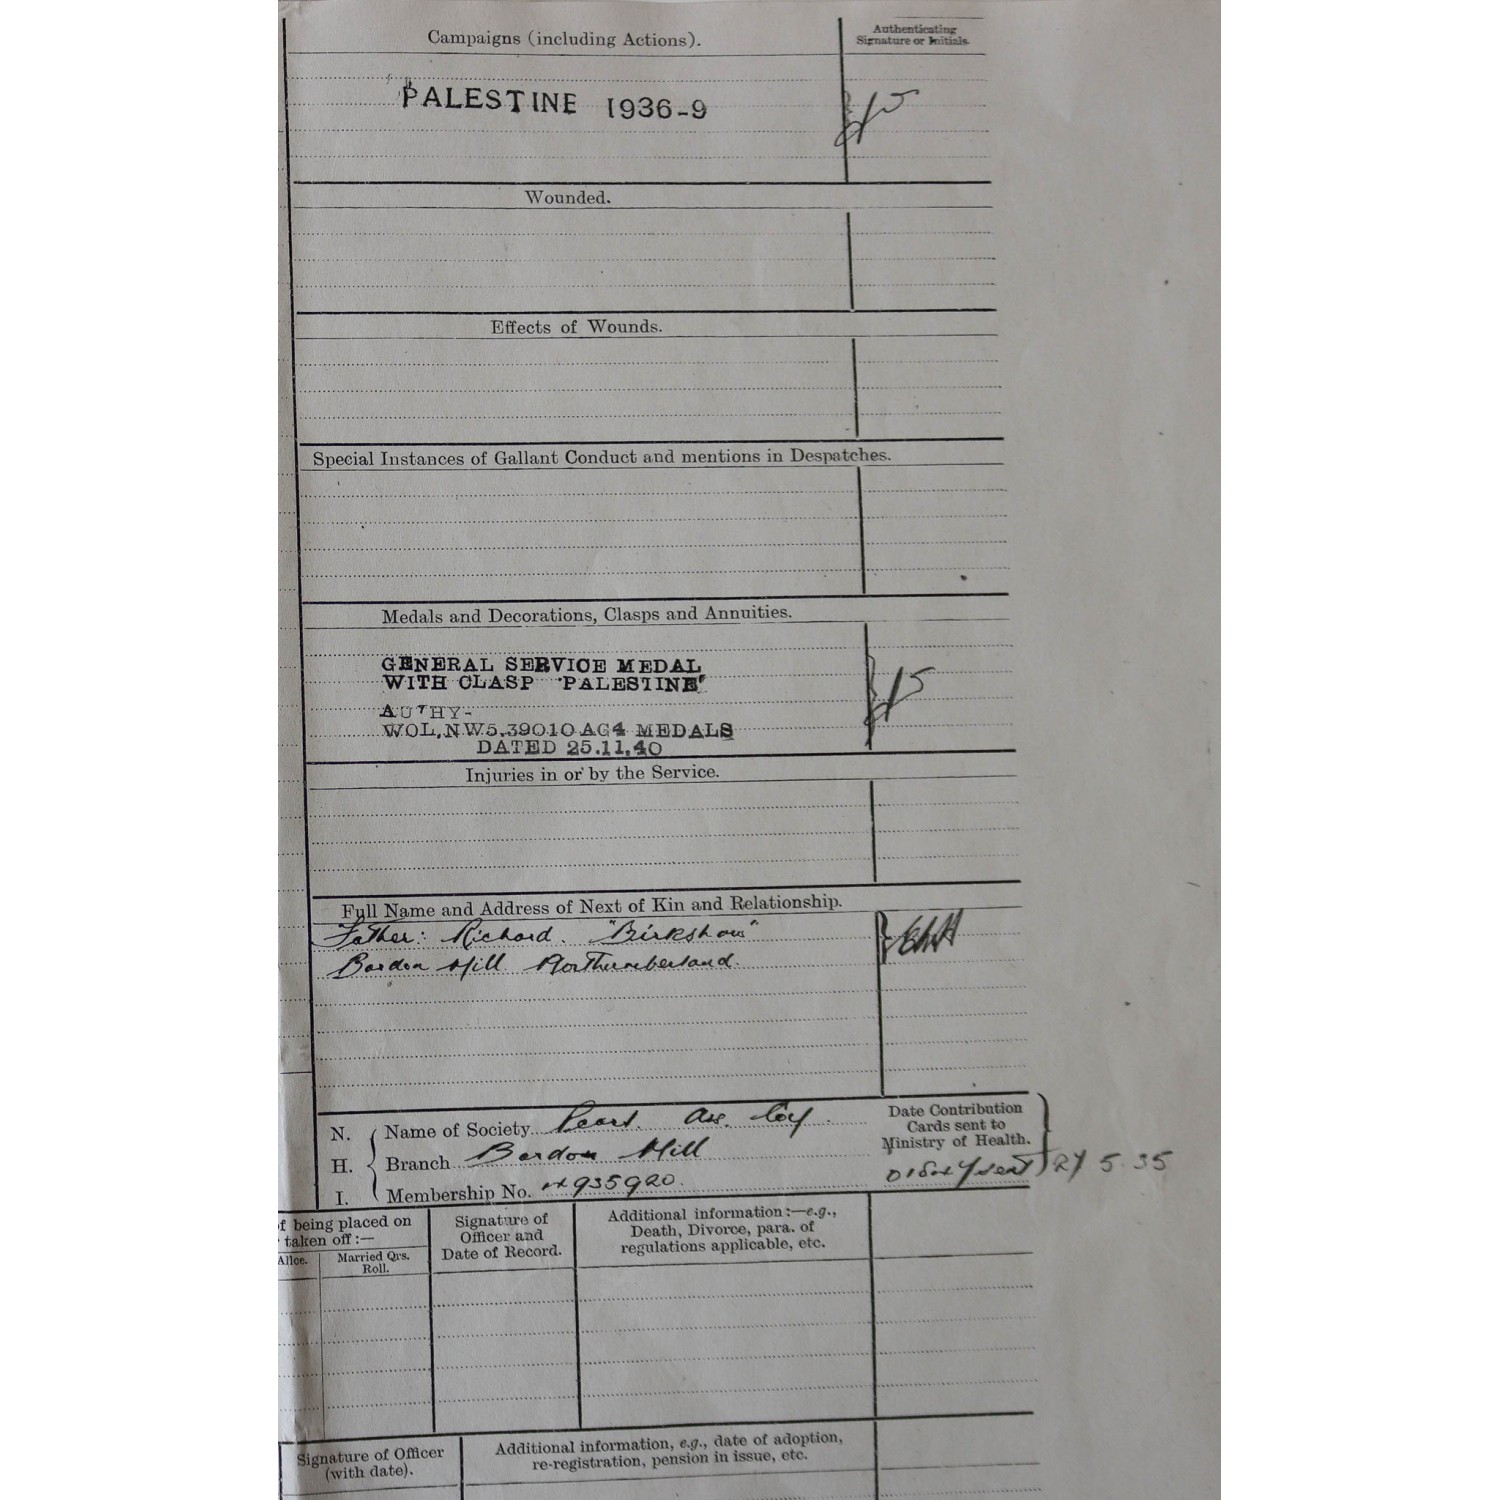 Campaigns (including Actions).
Authenticating
Signature or Initials.
PALESTINE 1936-9
Wounded.
Effects of Wounds.
Special Instances of Gallant Conduct and mentions in Despatches.
Medals and Decorations, Clasps and Annuities.
GENERAL SERVICE MEDAL
WITH CLASP "PALESTINE"
AUTHY-
WOL,NW5,39010 AG4 MEDALS
DATED 25.11.40
Injuries in or by the Service.
Full Name and Address of Next of Kin and Relationship.
Father: Richard. "Birkshaw"
Bardon Mill. Northumberland.
N.
H.
I.
Name of Society Pearl. Ass. Coy.
Branch Bardon Mill
Membership No. 935920.
Date Contribution
Cards sent to
Ministry of Health.
sent 27 5. 35
f being placed on
taken off :—
Allce.
Married Qrs.
Roll.
Signature of
Officer and
Date of Record.
Additional information :—e.g.,
Death, Divorce, para. of
regulations applicable, etc.
Signature of Officer
(with date).
Additional information, e.g., date of adoption,
re-registration, pension in issue, etc.